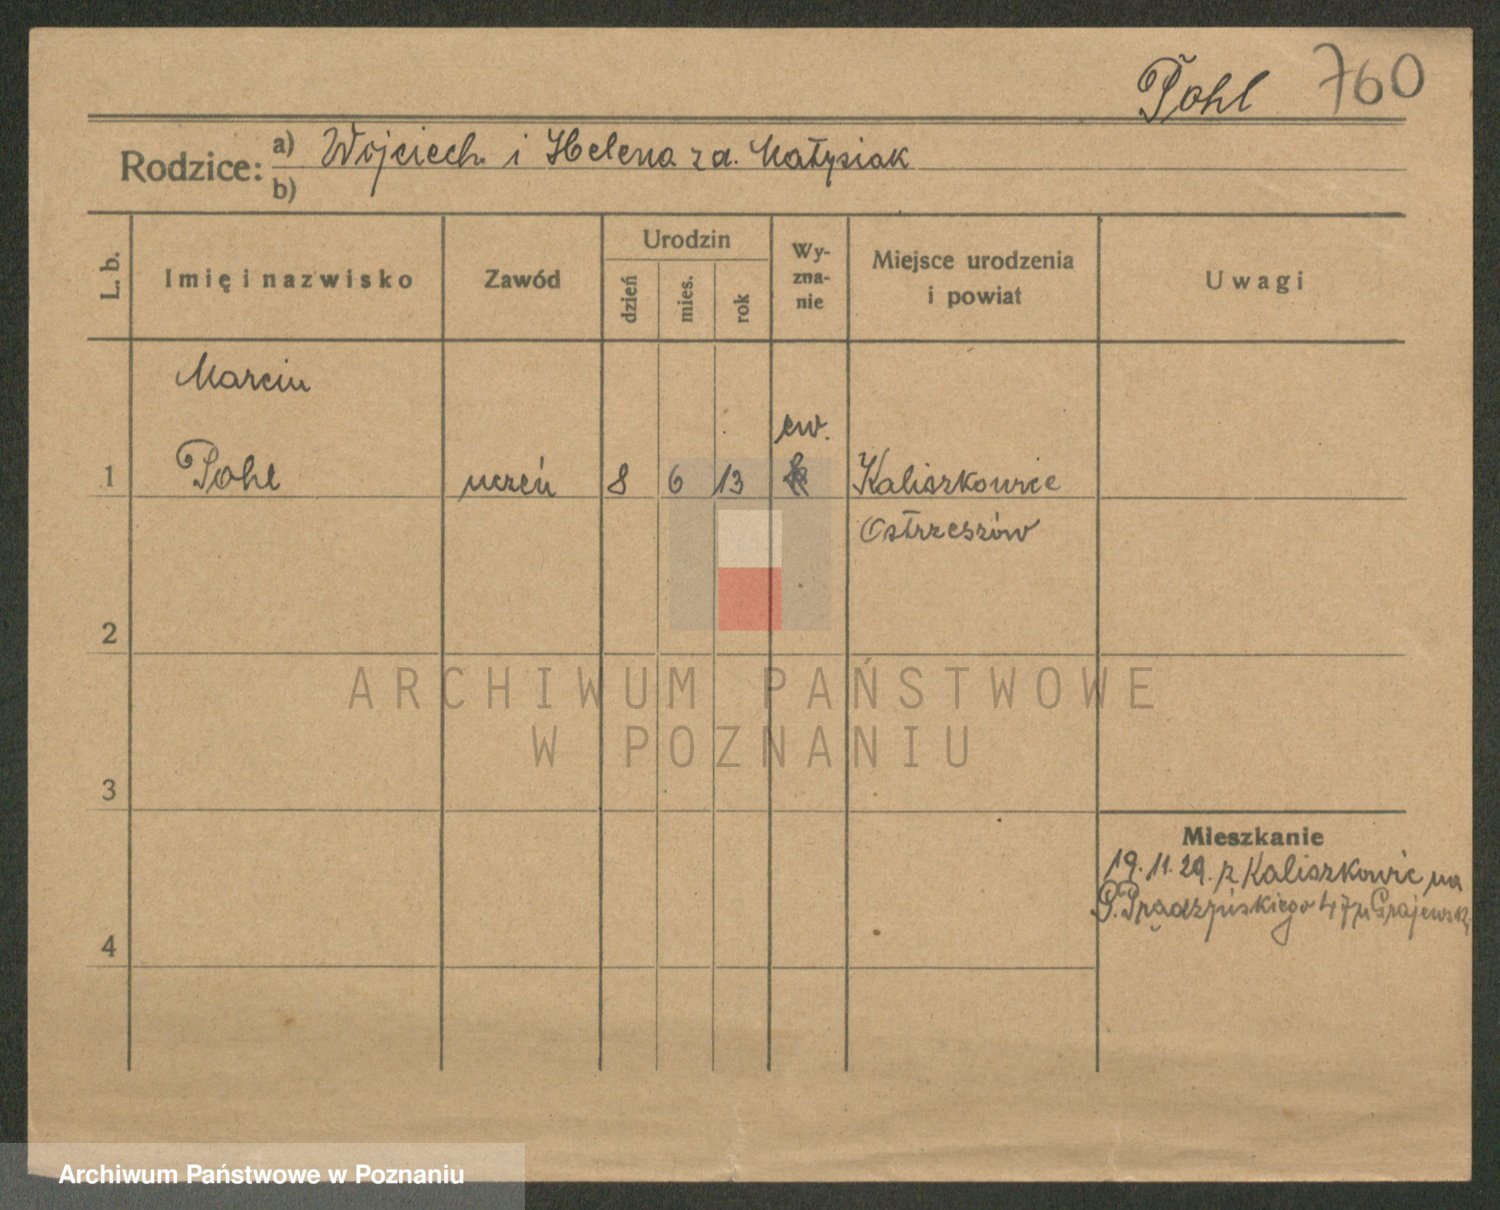 Pohl 760
Rodzice: a) Wojciech i Helena z d. Małysiak
b)
L. b. Imię i nazwisko Zawód Urodzin dzień mies. rok Wy-zna-nie Miejsce urodzenia i powiat Uwagi
Marcin
ew.
1 Pohl uczeń 8 6 13 Kaliszkowice
Ostrzeszów
2
ARCHIWUM PAŃSTWOWE
W POZNANIU
3
Mieszkanie
19.11.29. z Kaliszkowic na
G. Prądzyńskiego 47 u Grajewsk
4
Archiwum Państwowe w Poznaniu